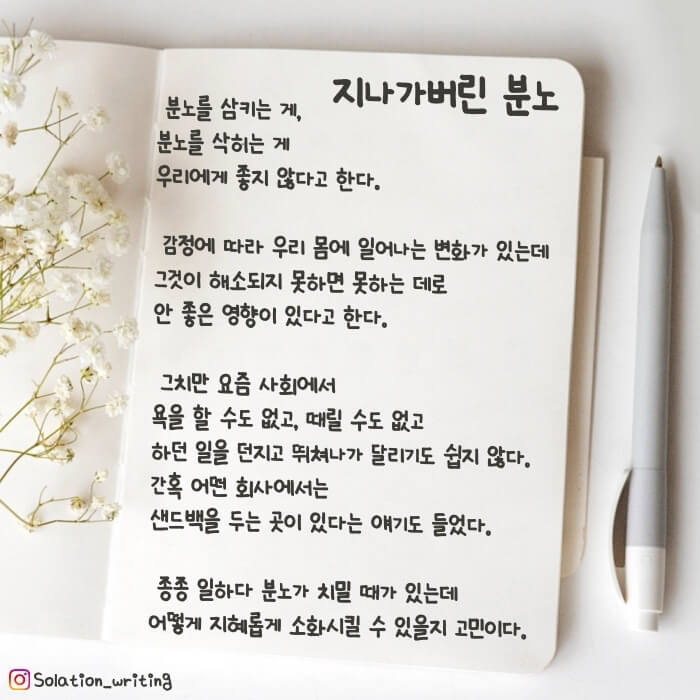 지나가버린 분노
분노를 삼키는 게,
분노를 삭히는 게
우리에게 좋지 않다고 한다.
감정에 따라 우리 몸에 일어나는 변화가 있는데
그것이 해소되지 못하면 못하는 데로
안 좋은 영향이 있다고 한다.
그치만 요즘 사회에서
욕을 할 수도 없고, 때릴 수도 없고
하던 일을 던지고 뛰쳐나가 달리기도 쉽지 않다.
간혹 어떤 회사에서는
샌드백을 두는 곳이 있다는 얘기도 들었다.
종종 일하다 분노가 치밀 때가 있는데
어떻게 지혜롭게 소화시킬 수 있을지 고민이다.
Solation_writing